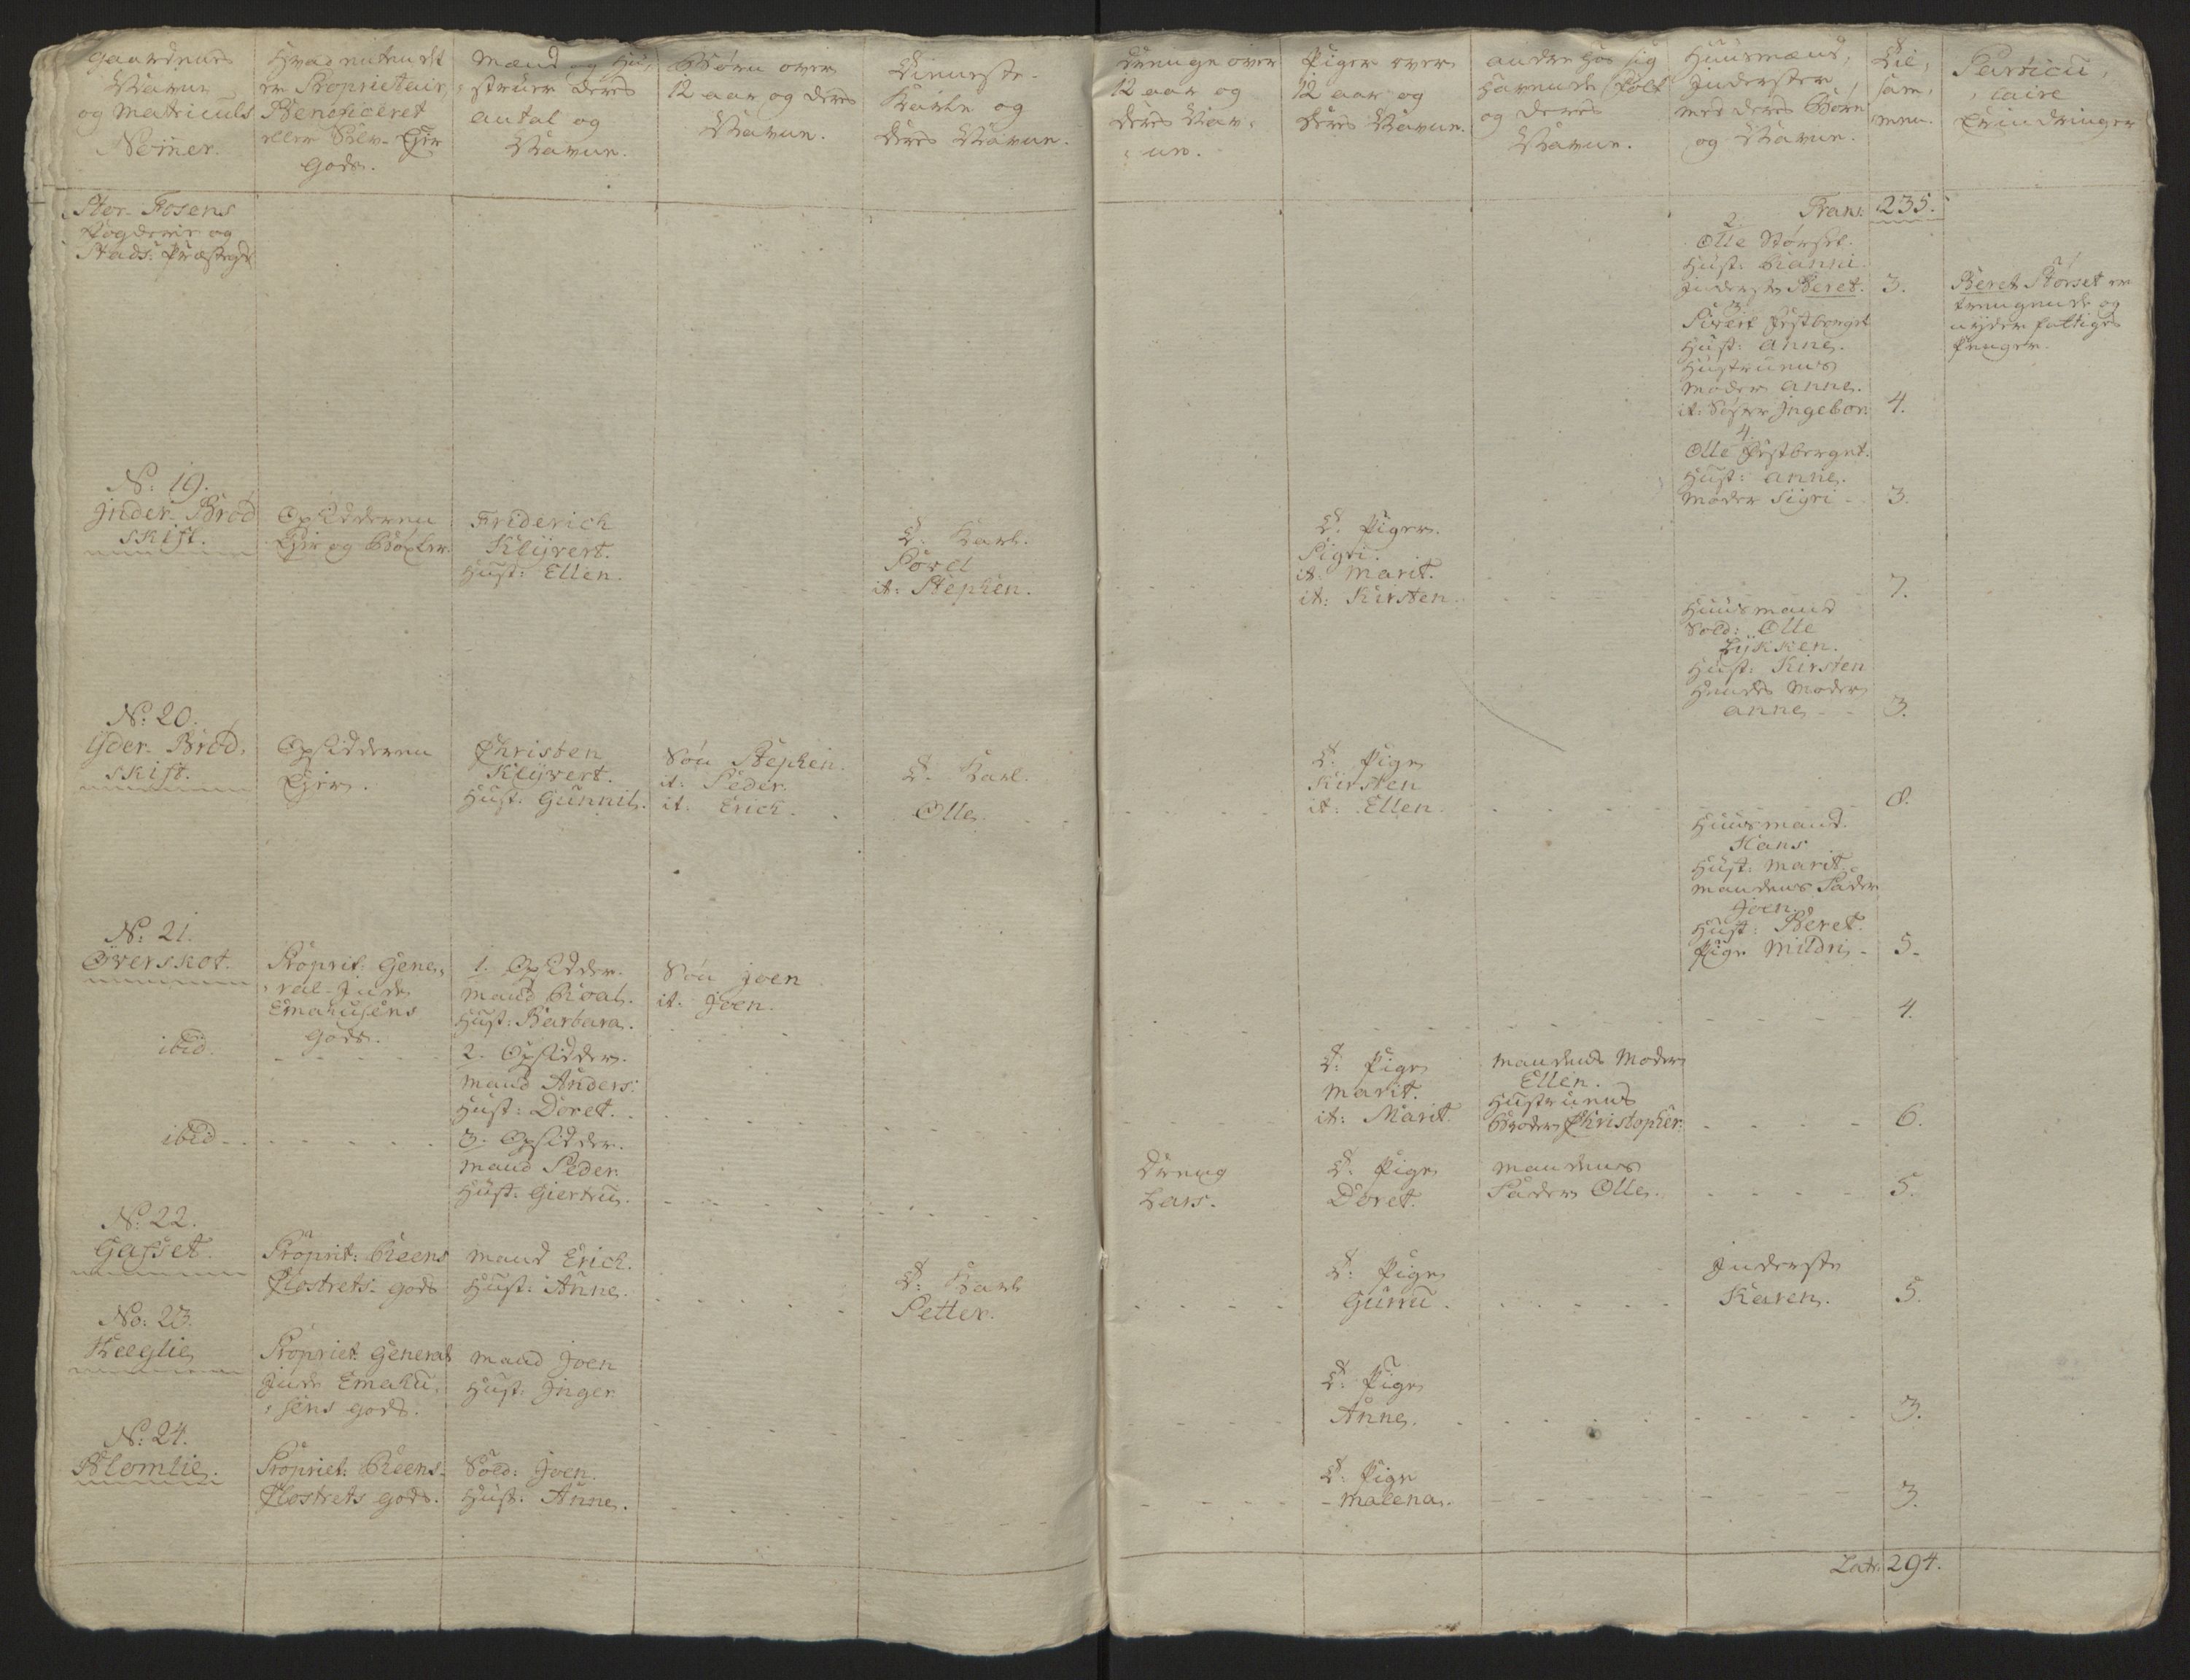 Gaardenes
Navne
og Matriculs
Nomer.
Hvad enten det
er Proprietair,
Beneficeret
eller Selv-Ejer
Gods.
Mænd og Hu,
struer deres
antal og
Navne.
Børn over
12 aar og deres
Navne.
Tieneste-
Karle og
deres Navne.
Drenge over
12 aar og
deres Nav,
ne.
Piger over
12 aar og
deres Navne.
andre hos sig
havende Folk
og deres
Navne.
Huusmænd,
Inderster
med deres Børn
og Navne.
Til,
sam,
men.
Particu,
laire
Erindringer
Stor-Fosens
Fogderie og
Stads: Præstegd
Trans: 235.
2.
Olle Størset.
Hust:
Inderste Beret. 3.
Beret Størset er
trengende og
nyder fattiges
Penger.
3.
Sivert Hestberget
Hust: Anne.
Hustruens
Moder Anne.
it: Søster Ingebor 4.
4.
Olle Hestberget.
Hust: Anne.
Moder Sigri - 3.
N: 19.
Inder-Brød
skift.
Opsidderen
Ejer og Bøxler.
Friderich
Klÿvert.
Hust: Ellen.
T: Karl.
Povel
it: Stephen.
T: Piger.
Sigri.
it: Marit.
it: Kirsten.
7.
Huusmand
Sold: Olle
Lÿkken.
Hust: Kirsten
Hendes Moder
Anne - 3.
N: 20.
Yder-Brød,
skift.
Opsidderen
Ejer.
Christen
Klÿvert.
Hust: Gunnil.
Søn Stephen.
it: Peder.
it: Erich.
T: Karl.
Olle.
T: Pige
Kirsten
it: Ellen
8.
Huusmand.
Hans
Hust: Marit.
Mandens Fader
Joen.
Hust: Beret.
Pige Mildri - 5.
N: 21.
Overskot.
Proprit: Gene,
ral-Inde
Emahusens
Gods.
1. Opsidder.
Mand Roal.
Hust: Barbara.
Søn Joen
it. Joen.
4.
ibid.
2. Opsidder.
Mand Anders:
Hust: Doret.
T: Pige
Marit.
it: Marit.
Mandens Moder
Ellen.
Hustruens
Broder Christopher.
6.
ibid
3. Opsidder.
Mand Peder.
Hust: Giertru.
Dreng
Lars.
T: Pige
Doret.
Mandens
Fader Olle.
5.
N: 22.
Gasset.
Proprit: Reens
Closters Gods
Mand Erich.
Hust: Anne.
T: Karl
Petter.
T: Pige
Gurru.
Inderste
Karen.
5.
No: 23.
Propriet: General
Inde Emahu,
sens Gods.
Mand Joen
Hust: Inger
T: Pige
Anne.
3.
N: 24.
Blomlie.
Propriet: Reens-
Closters Gods.
Sold: Joen.
Hust: Anne.
T: Pige
Malena.
3.
Lat: 294.